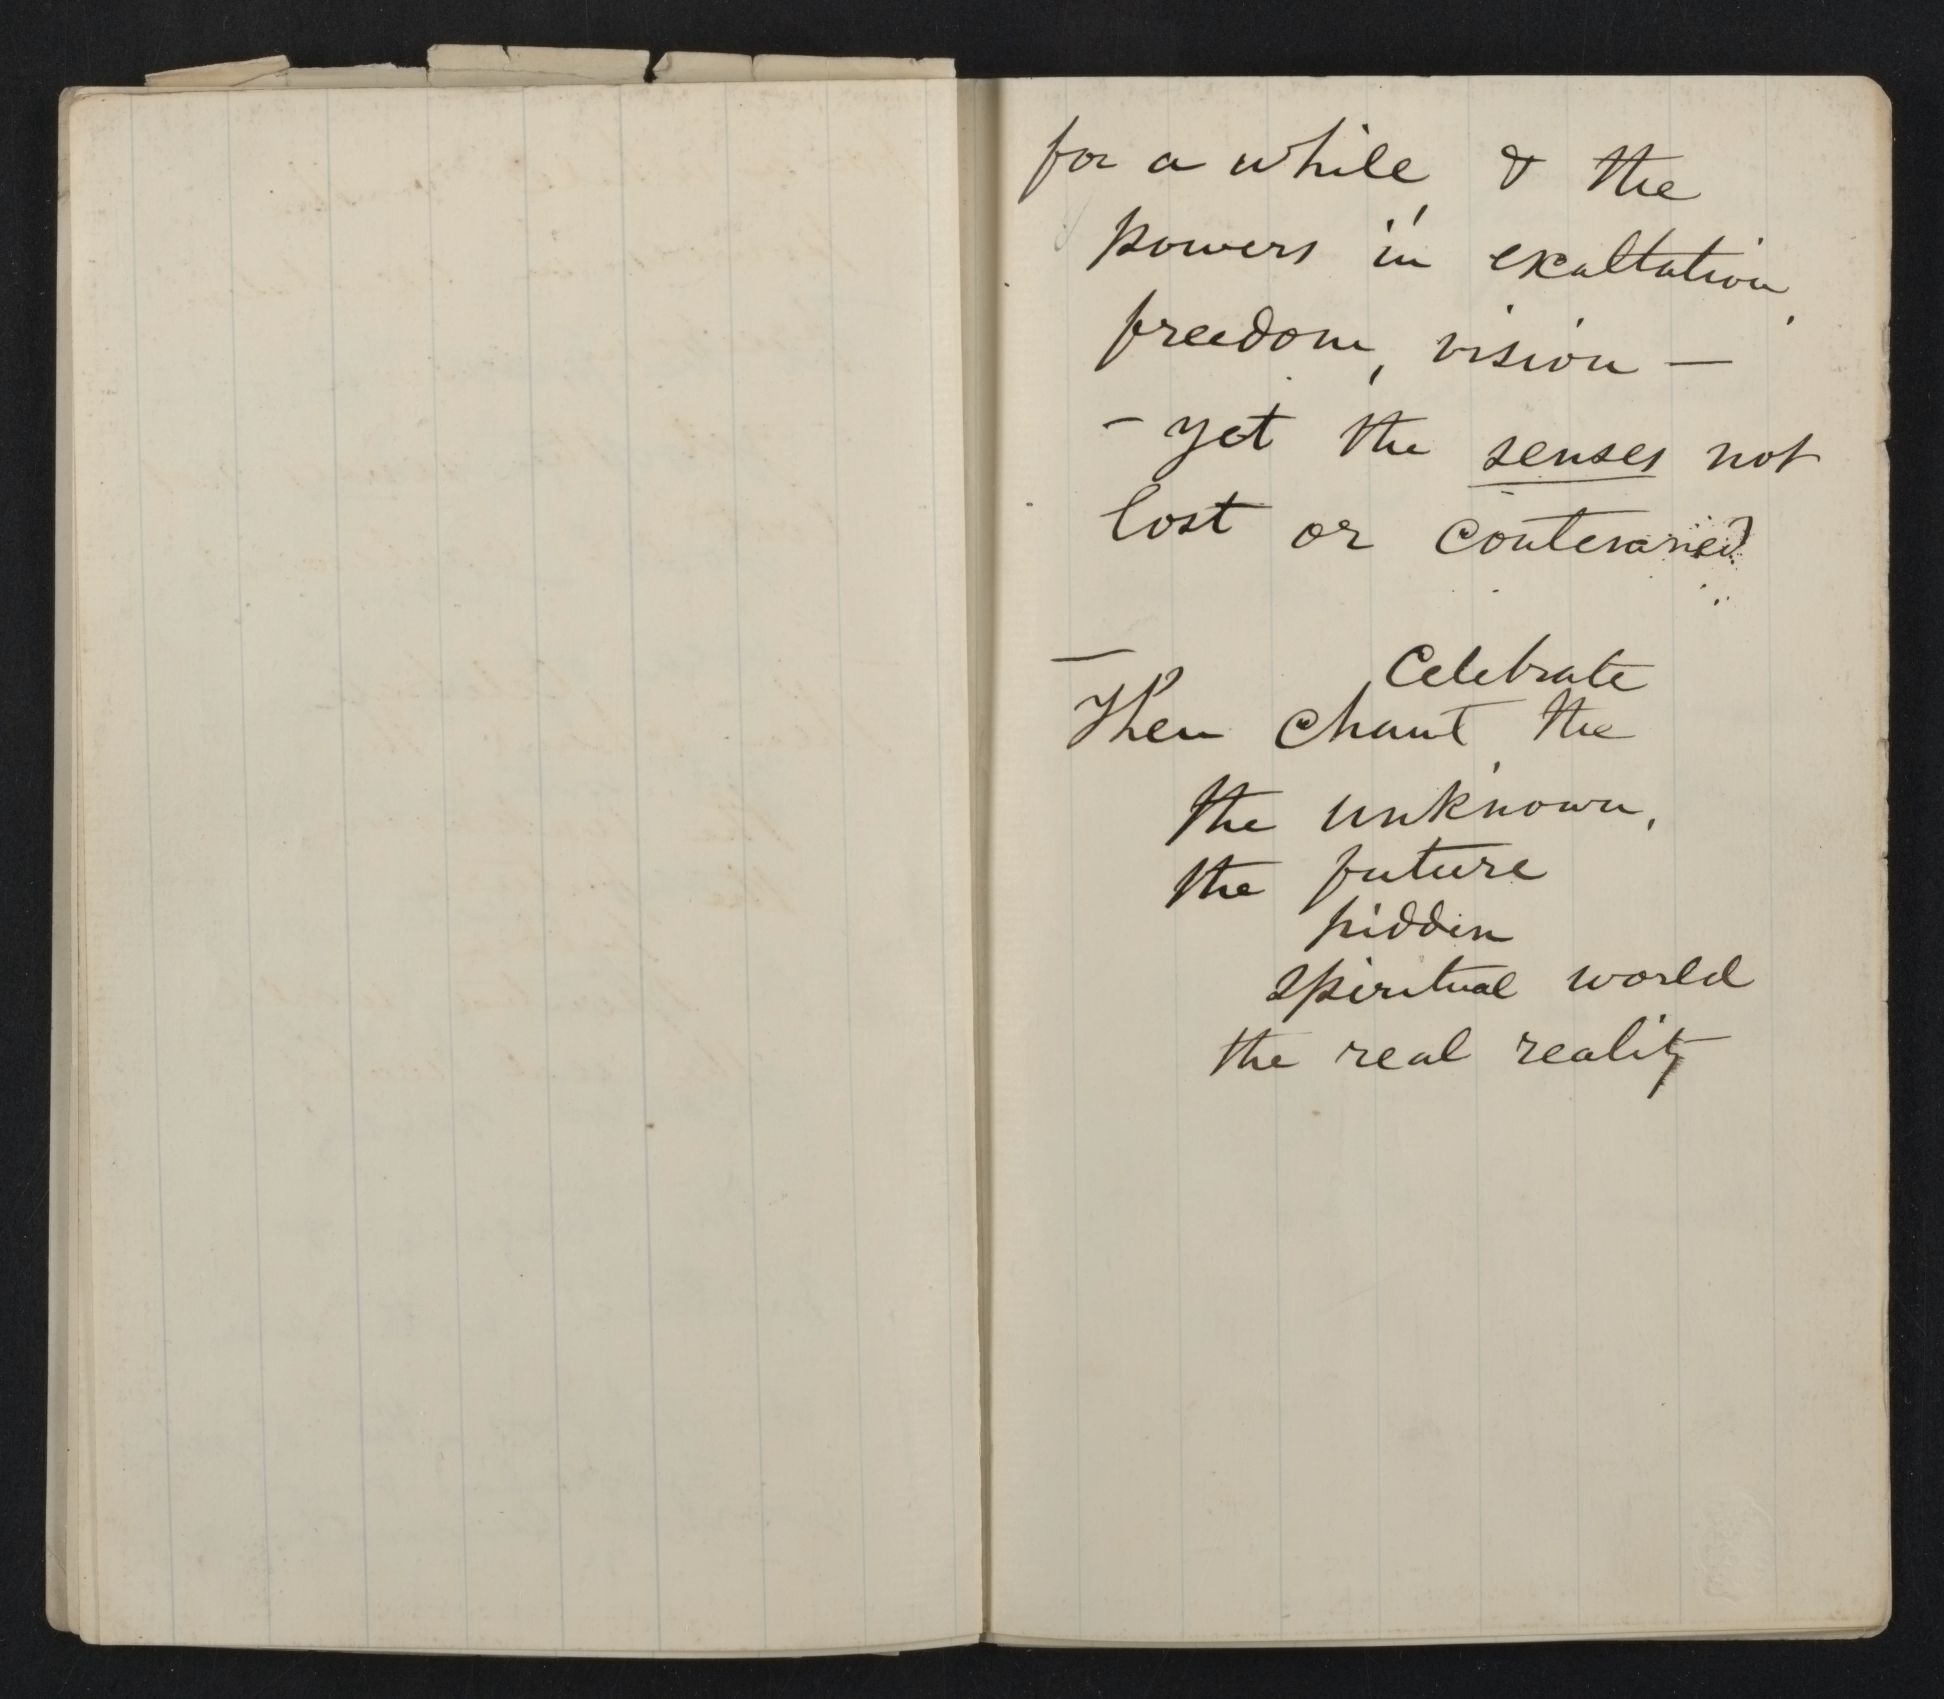 for a while, & the
powers in exaltation,
freedom, vision —
– yet the senses not
lost or
—
Celebrate
Then chant the
the unknown,
the future
hidden
spiritual world
the real reality